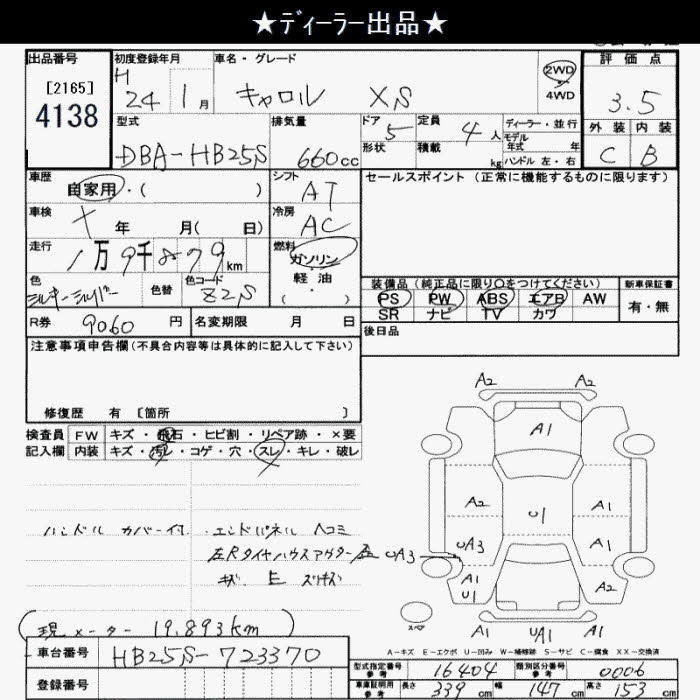 ★ディーラー出品★
出品番号 初度登録年月 車名・グレード 評価点
[2165] 4138
H 24 1月 キャロル XS 2WD 4WD 3.5
型式 排気量 ドア 5 定員 4人 ディーラー・並行 外装 内装
DBA-HB25S 660cc 形状 積載 kg モデル年式 年 ハンドル 左・右 C B
車歴 自家用・( ) シフト AT セールスポイント (正常に機能するものに限ります)
車検 × 年 月( 日) 冷房 AC
走行 1万9千879km 燃料 ガソリン・軽油・( )
色 シルキーシルバー 色替 色コード Z2S
装備品 (純正品に限り○をつけてください) 新車保証書
PS PW ABS エアB AW 有・無
SR ナビ TV カワ
R券 9060円 名変期限 月 日 後日品
注意事項申告欄(不具合内容等は具体的に記入して下さい)
修復歴 有 [箇所 ]
検査員 FW キズ・飛石・ヒビ割・リペア跡・×要
記入欄 内装 キズ・汚レ・コゲ・穴・スレ・キレ・破レ
A2 A2
A1
A2 U1 A1
UA3 A1
A1 U1 A2
A1 UA1 A1
スペア
ハンドル カバー付 ・エンドパネル ヘコミ
左Rタイヤハウスアウター UA3
キズ
(現メーター 19.893km)
A-キズ E-エクボ U-凹み W-補修跡 S-サビ C-腐食 XX-交換済
車台番号 HB25S-723370
登録番号
型式指定番号 参考 16404 類別区分番号 参考 0006
車庫証明用 参考 長さ 339cm 幅 147cm 高さ 153cm